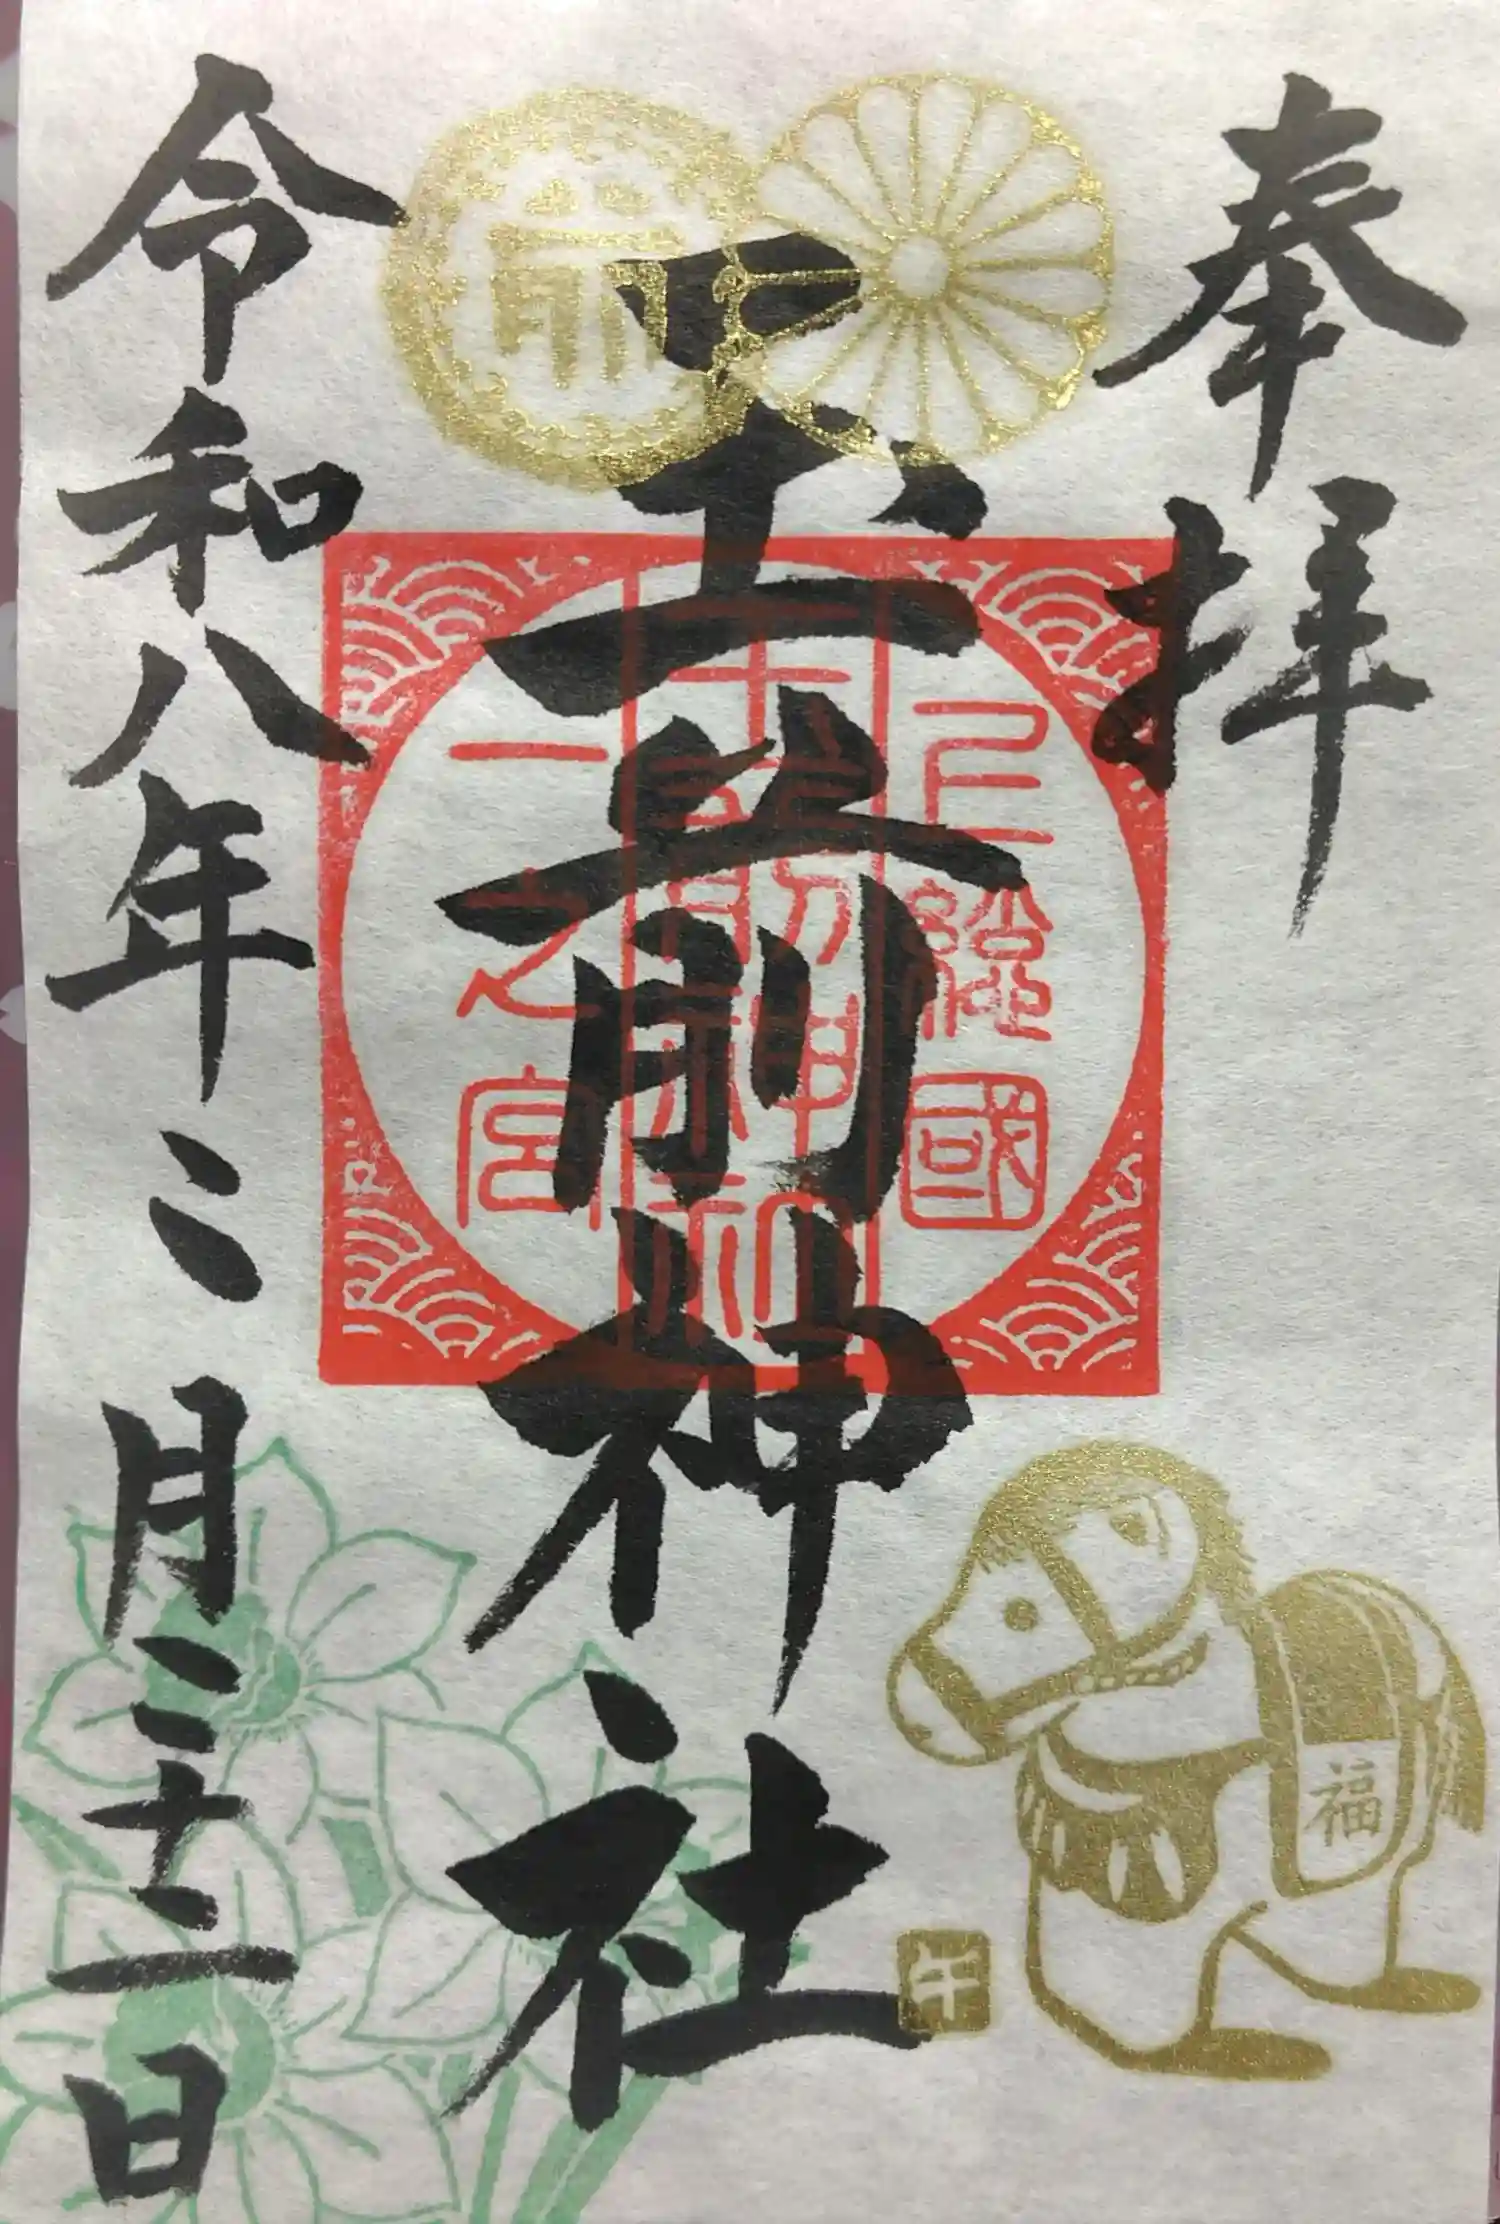 奉拝
玉前神社
令和八年二月二十二日
上總國
玉前神社
一之宮
福
午